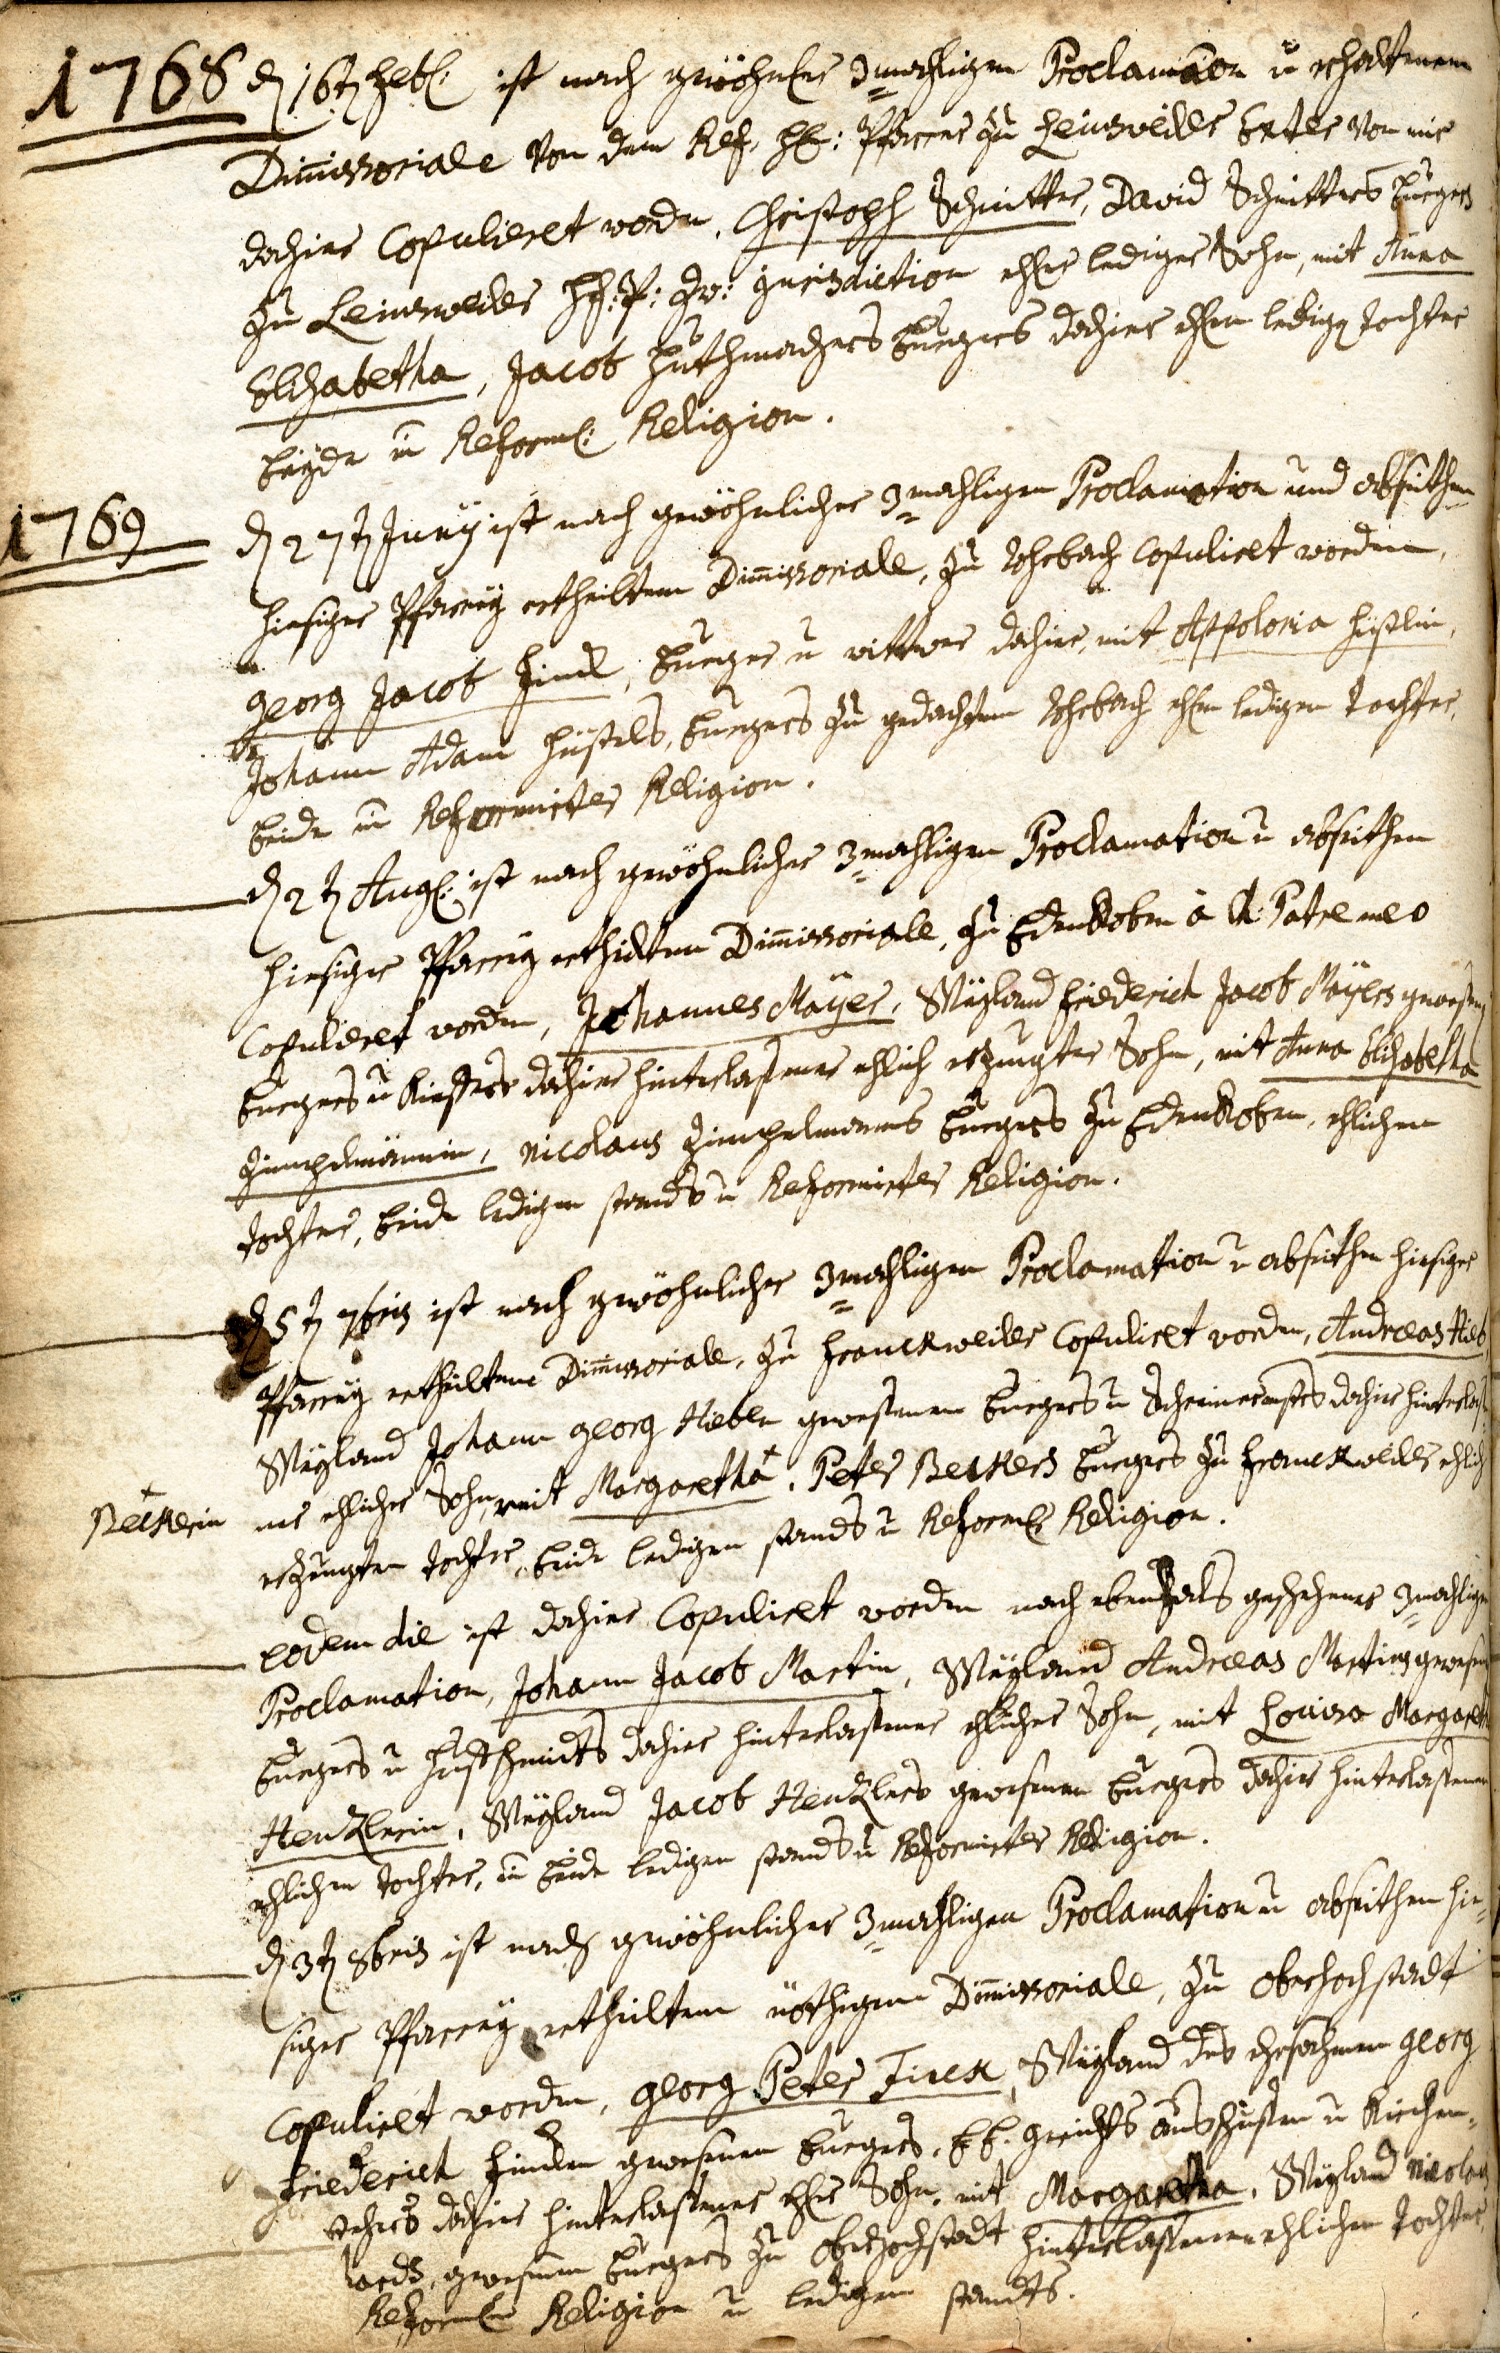 1768 d 16t Febr: ist nach gewöhnlr 3mahligen Proclamaon u erhaltenem
Dimissoriale von dem Ref. H: Pfarrer zu Leinsweiler Exter von mir
dahier Copuliret worden, Christoph Schnitter, David Schnitters burgers
zu Leinsweiler Hf: P: Zw: jurisdiction ehlr lediger Sohn, mit Anna
Elisabetha, Jacob Huthmachers burgers dahier ehlen ledige Tochter
beyde u Reforml: Religion.
1769 d 27t Juny ist nach gewöhnlicher 3mahligen Proclamation und abseithen
hiesiger Pfarrey ertheiltem Dimissoriale, zu Rohrbach Copuliret worden,
Georg Jacob Finck, burger u wittwer dahier, mit Appolonia Hüstlin,
Johann Adam Hüstels, burgers zu gedachtem Rohrbach ehlen ledigen Tochter,
beide u Reformirter Religion.
d 2t Aug: ist nach gewöhnlicher 3mahligen Proclamation u abseithen
hiesiger Pfarrey ertheiltem Dimissoriale, zu Edenkoben à R: Patre meo
Copuliret worden, Johannes Mayer, Weyland Friederich Jacob Mayers gewesenen
burgers u Kiefers dahier hinterlaßener ehlich erzeugter Sohn, mit Anna Elisabetha
Zimpelmännin, Nicolaus Zimpelmanns burgers zu Edenkoben, ehlichen
Tochter, beide ledigen stands u Reformirter Religion.
d 5t 7bris ist nach gewöhnlicher 3mahligen Proclamation u abseithen hiesiger
Pfarrey ertheiltem Dimissoriale, zu Franckweiler Copuliret worden, Andreas Hieb,
Weyland Johann Georg Hieben gewesenen burgers u Schreiners dahier hinterlaß
ner ehlicher Sohn, mit Margaretha +, Peter Beckers burgers zu Franckweiler ehlich
+ Beckerin
erzeugten Tochter, beide ledigen stands u Reforml Religion.
eodem die ist dahier Copuliret worden nach ebenfals geschehener 3mahligen
Proclamation, Johann Jacob Martin, Weyland Andreas Martins gewesenen
burgers u Hufschmidts dahier hinterlaßener ehlicher Sohn, mit Louisa Margareth
Henzlerin, Weyland Jacob Henzlers gewesenen burgers dahier hinterlaßenen
ehlichen Tochter, u beide ledigen stands u Reformirter Religion.
d 3t 8bris ist nach gewöhnlicher 3mahligen Proclamation u abseithen hie-
siger Pfarrey ertheiltem nöthigem Dimissoriale, zu Oberhochstadt
Copuliret worden, Georg Peter Finck, Weyland des ehrsahmen Georg
Friederich Fincken gewesenen burgers, gerichts u Kirchen-
dahier hinterlaßener ehlr Sohn, mit Margaretha, Weyland Nicolaus
gewesenen burgers zu Oberhochstadt hinterlaßenen ehlichen Tochter,
Religion u ledigen standts.